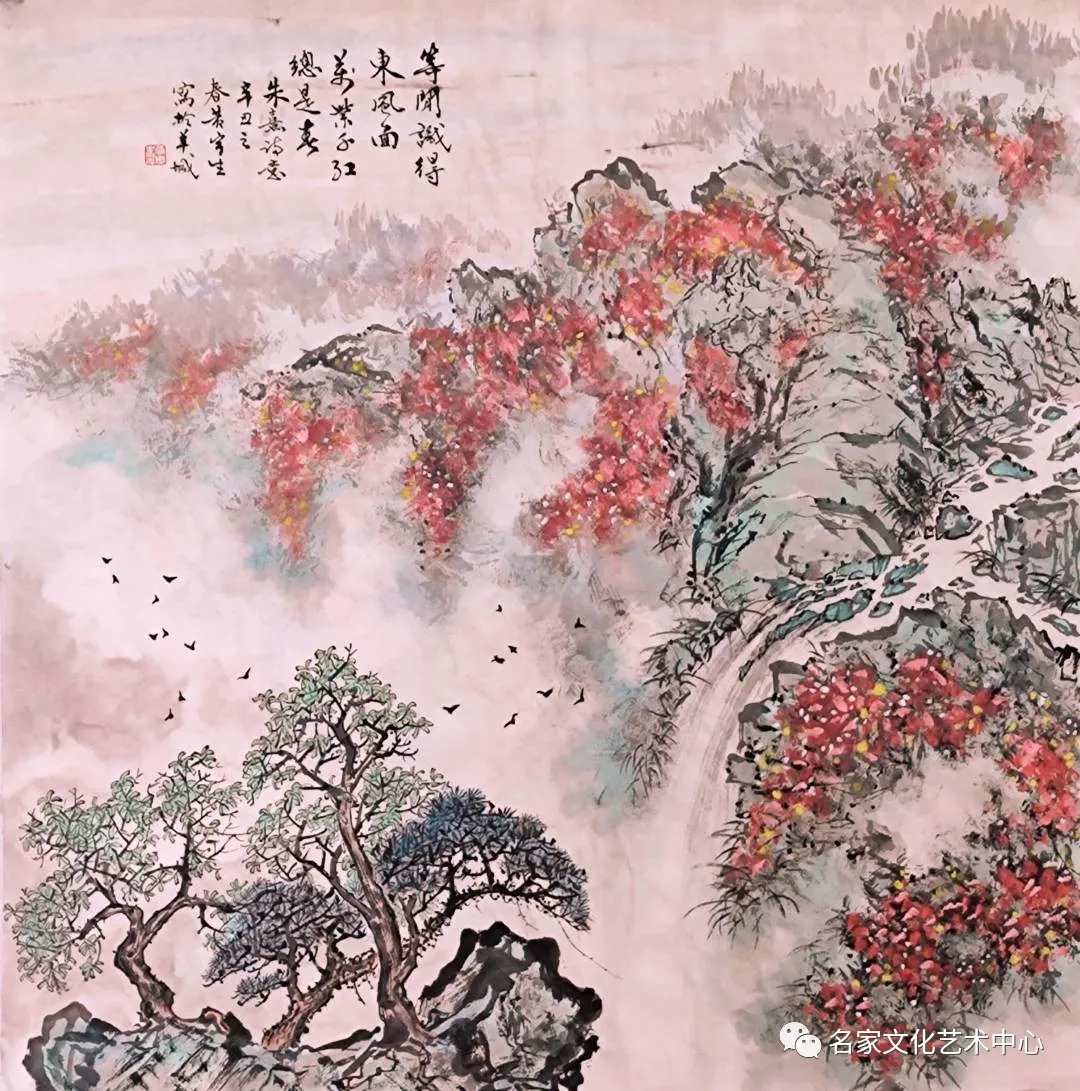 等閒識得
東風面
萬紫千紅
總是春
朱熹詩意
辛丑之
春黃生
寫於羊城
名家文化艺术中心